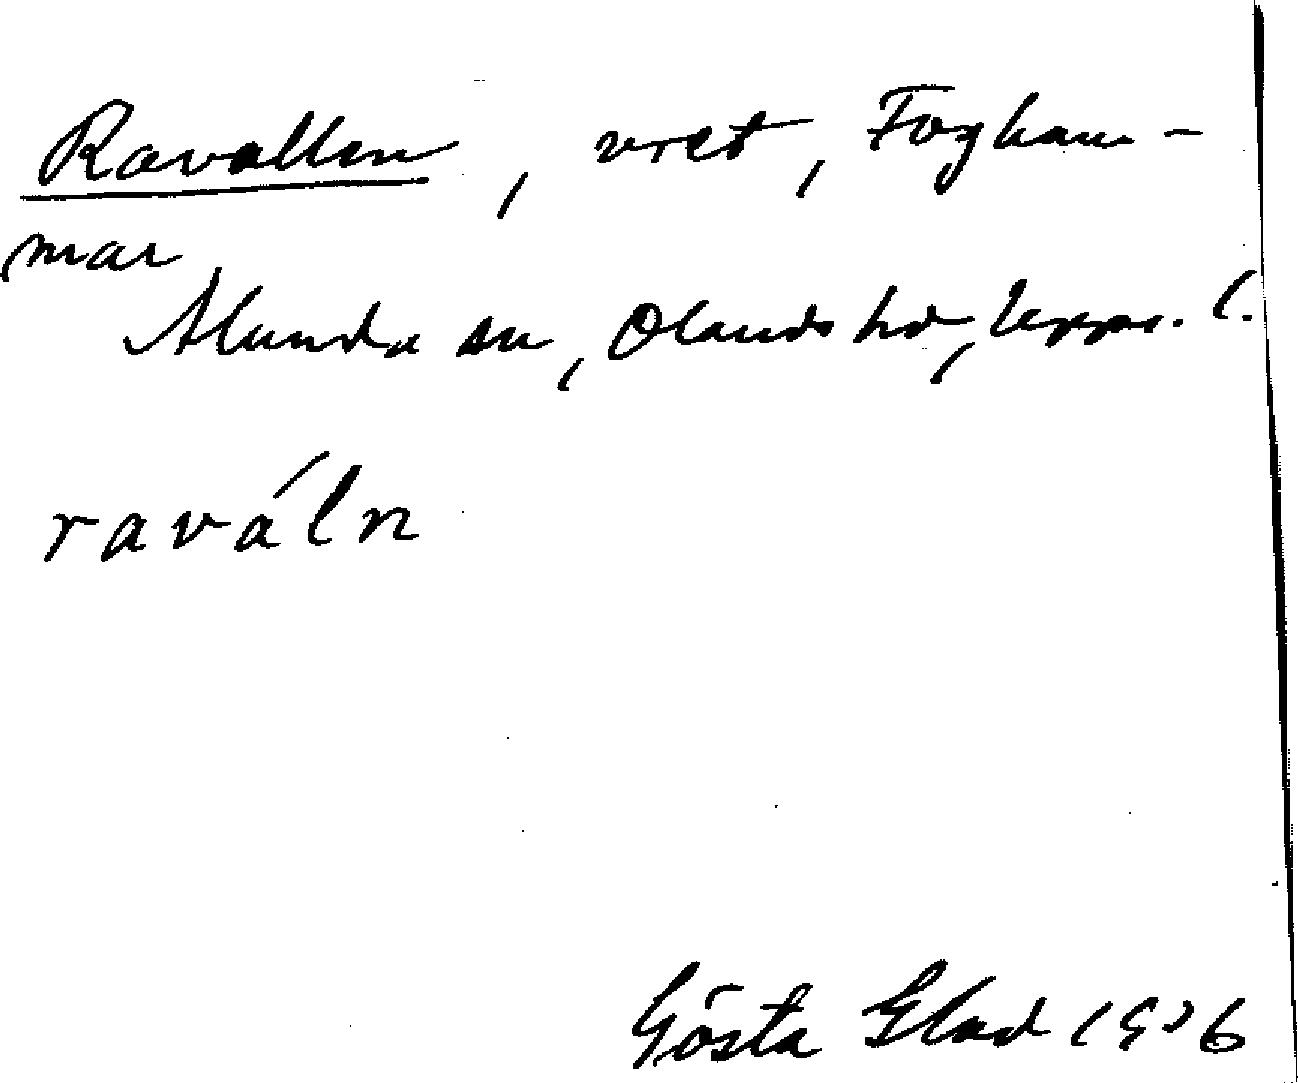 Ravallen, vret, Fogham-
mar
Alunda sn, Olands hd, Upps. l.
raváln
Gösta Elad 1926